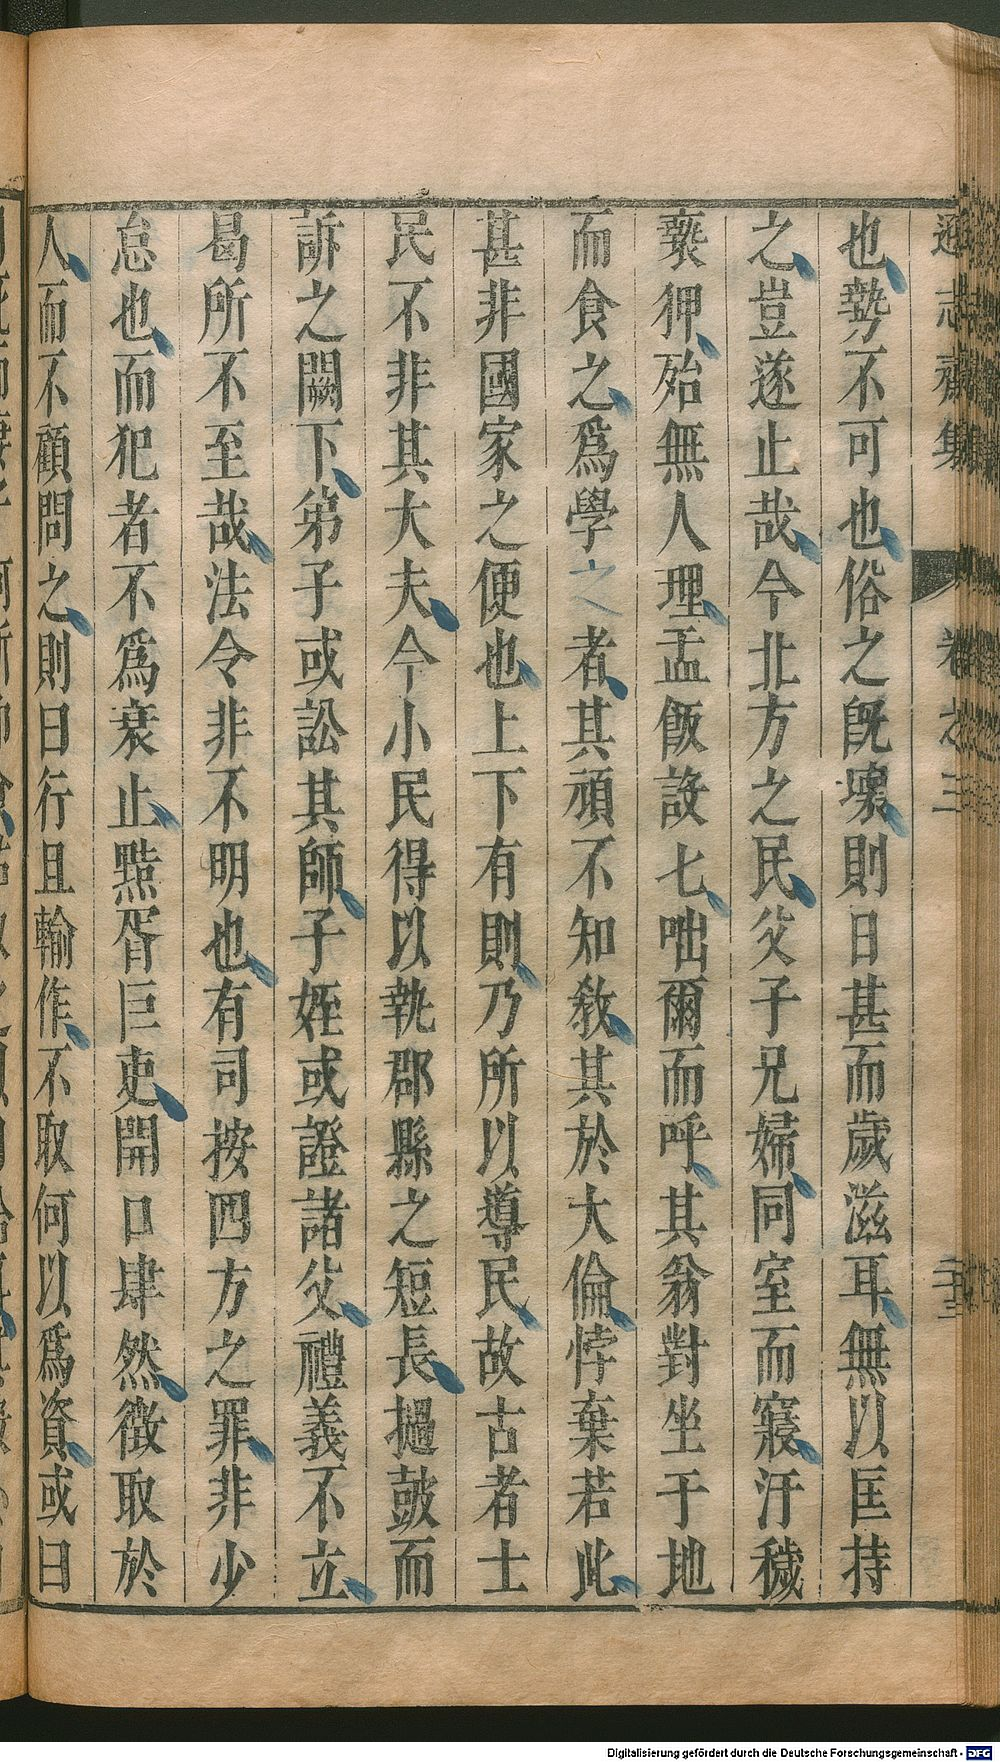 遜志齋集 卷之三
也勢不可也俗之既壞則日甚而歲滋耳無以匡持
之豈遂止哉今北方之民父子兄婦同室而寢汙穢
褻狎殆無人理盂飯設七咄爾而呼其翁對坐于地
而食之爲學之者其頑不知教其於大倫悖棄若此
甚非國家之便也上下有則乃所以導民故古者士
民不非其大夫今小民得以執郡縣之短長撾鼓而
訴之闕下弟子或訟其師子姪或證諸父禮義不立
曷所不至哉法令非不明也有司按四方之罪非少
怠也而犯者不爲衰止黠胥巨吏開口肆然徵取於
人而不顧問之則曰行且輸作不取何以爲資或曰
Digitalisierung gefördert durch die Deutsche Forschungsgemeinschaft - DFG